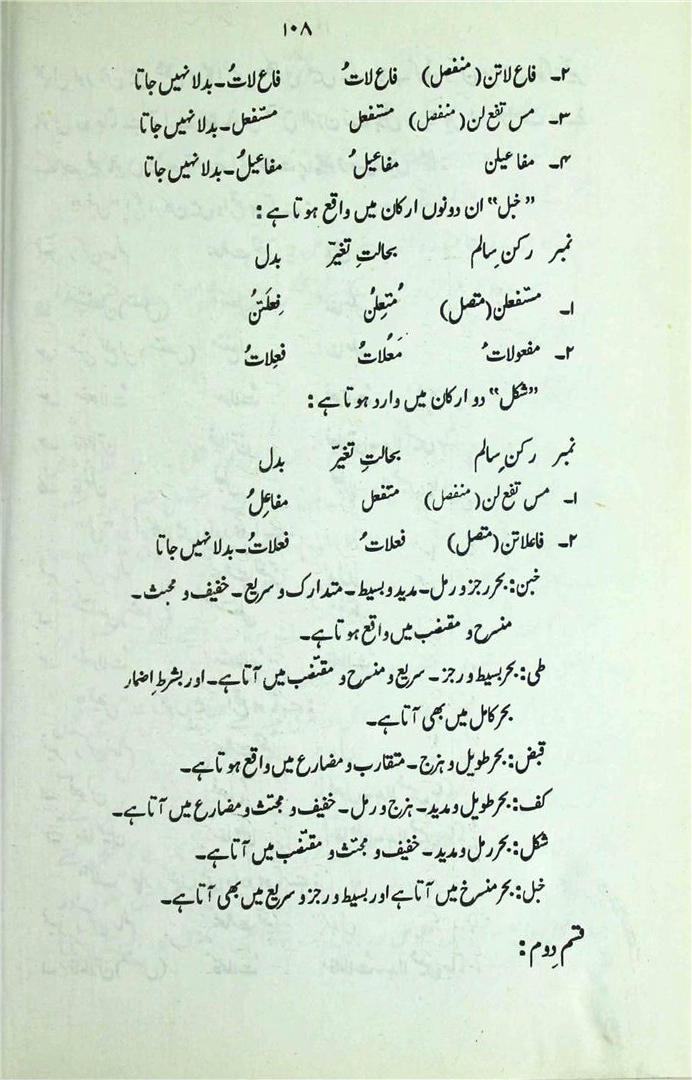 ۱۰۸
۲۔ فاع لاتن (منفصل) فاع لاتُ فاع لاتُ۔ بدلا نہیں جاتا
۳۔ مس تفع لن (منفصل) مستفعل مستفعل۔ بدلا نہیں جاتا
۴۔ مفاعیلن مفاعیلُ مفاعیلُ۔ بدلا نہیں جاتا
”خبل“ ان دونوں ارکان میں واقع ہوتا ہے:
نمبر رکنِ سالم بحالتِ تغیّر بدل
۱۔ مستفعلن (متصل) مُتَعِلُن فِعلَتُن
۲۔ مفعولاتُ مَعُلاتُ فعِلاتُ
”شکل“ دو ارکان میں وارد ہوتا ہے:
نمبر رکنِ سالم بحالتِ تغیّر بدل
۱۔ مس تفع لن (منفصل) متفعل مفاعِلُ
۲۔ فاعلاتن (متصل) فعلاتُ فعلاتُ۔ بدلا نہیں جاتا
خبن: بحر رجز و رمل۔ مدید و بسیط۔ متدارک و سریع۔ خفیف و مجتث۔
منسرح و مقتضب میں واقع ہوتا ہے۔
طی: بحر بسیط و رجز۔ سریع و منسرح و مقتضب میں آتا ہے۔ اور بشرطِ اضمار
بحر کامل میں بھی آتا ہے۔
قبض: بحر طویل و ہزج۔ متقارب و مضارع میں واقع ہوتا ہے۔
کف: بحر طویل و مدید۔ ہزج و رمل۔ خفیف و مجتث و مضارع میں آتا ہے۔
شکل: بحر رمل و مدید۔ خفیف و مجتث و مقتضب میں آتا ہے۔
خبل: بحر منسرخ میں آتا ہے اور بسیط و رجز و سریع میں بھی آتا ہے۔
قسمِ دوم: